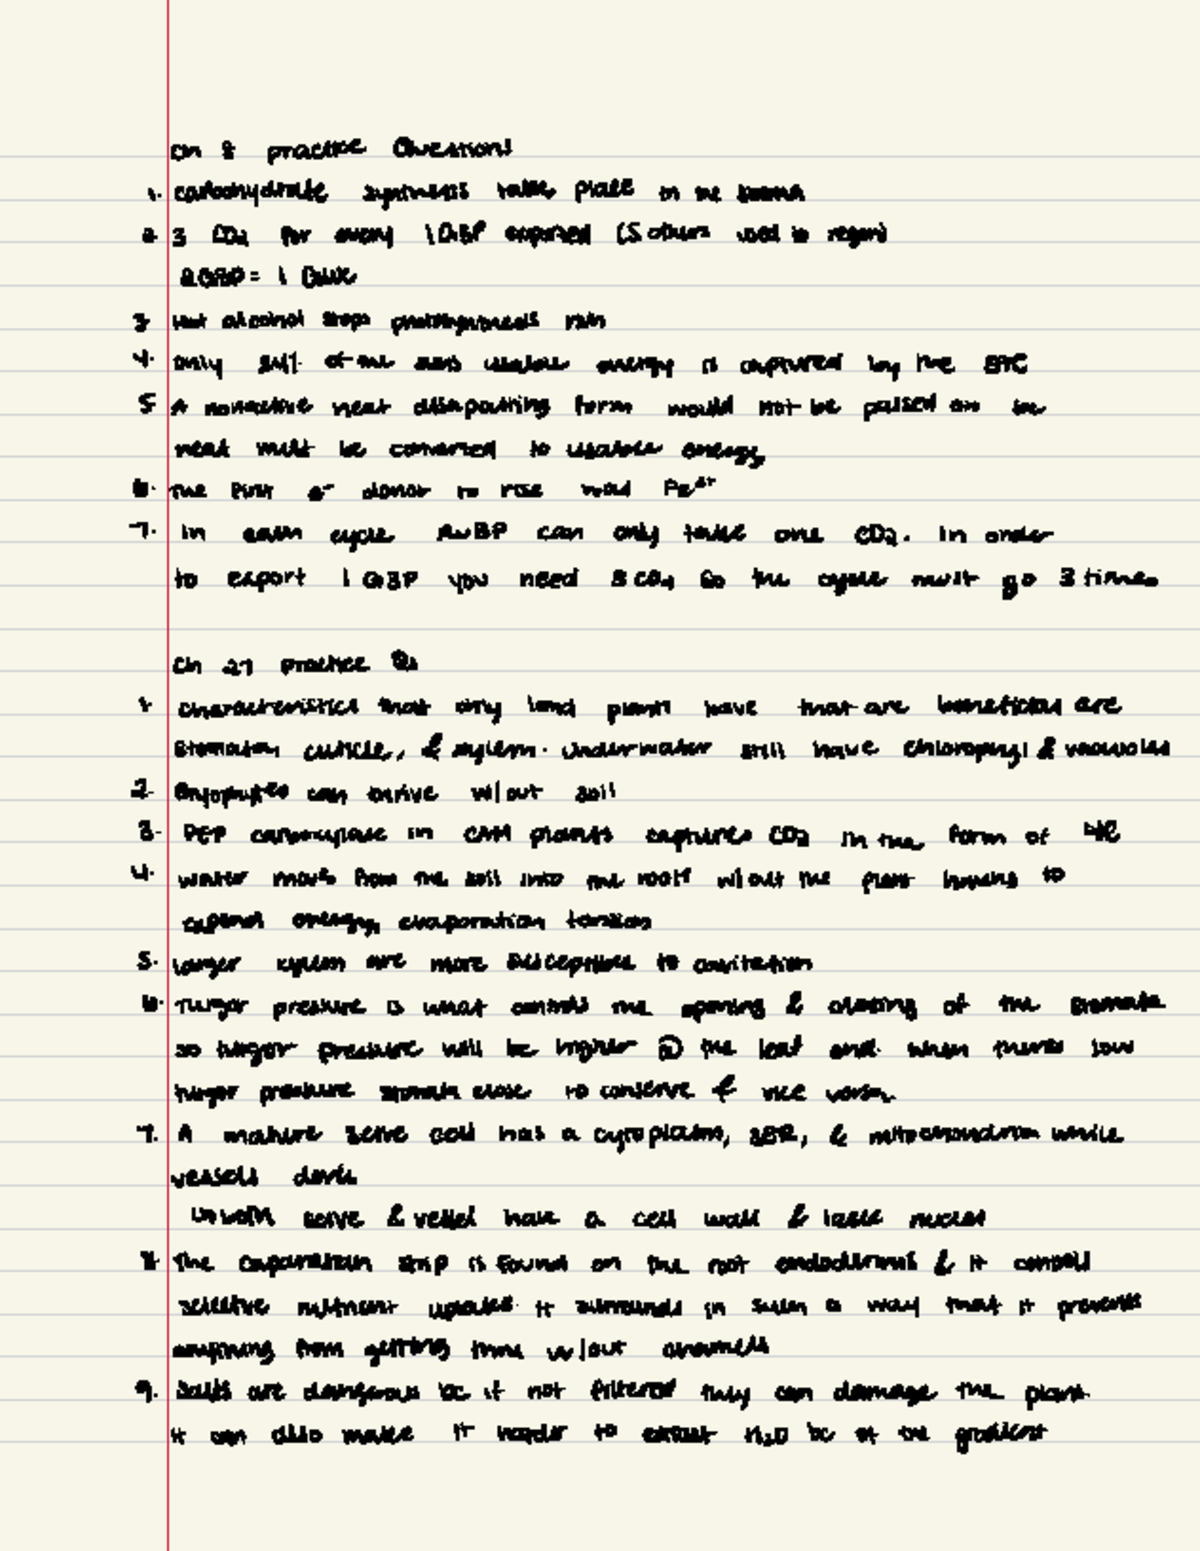 Ch 8 practice Questions
1. carbohydrate synthesis takes place in the stroma
2 3 CO2 for every 1 G3P exported (5 others used to regen)
2G3P = 1 Gluc
3 Hot alcohol stops photosynthesis
4. only 34% of the suns usable energy is captured by the ETC
5 A nonactive heat dissapating form would not be passed on
heat must be converted to usable energy
6. The first e- donor to rise was Fe2+
7. In each cycle RuBP can only take one CO2. In order
to export 1 G3P you need 3 CO2 so the cycle must go 3 times
Ch 27 practice Qs
1 characteristics that only land plants have that are beneficial are
stomata, cuticle, & xylem. Underwater still have chlorophyl & vacuoles
2. Bryophytes can thrive w/out soil
3. PEP carboxylase in CAM plants captures CO2 in the form of 4C
4. water moves from the soil into the roots w/out the plant having to
expend energy, evaporation tension
5. larger xylem are more susceptible to cavitation
6. Turgor pressure is what controls the opening & closing of the stomata
so turgor pressure will be higher @ the leaf and when theres low
turgor pressure stomata close to conserve & vice versa
7. A mature seive cell has a cytoplasm, SER, & mitochondrion while
vessels don't
both seive & vessel have a cell wall & lack nuclei
8 The casparian strip is found on the root endodermis & it controls
selective nutrient uptake. It surrounds in such a way that it prevents
anything from getting thru w/out channels
9. Salts are dangerous bc if not filtered they can damage the plant
it can also make it harder to extract H2O bc of the gradient